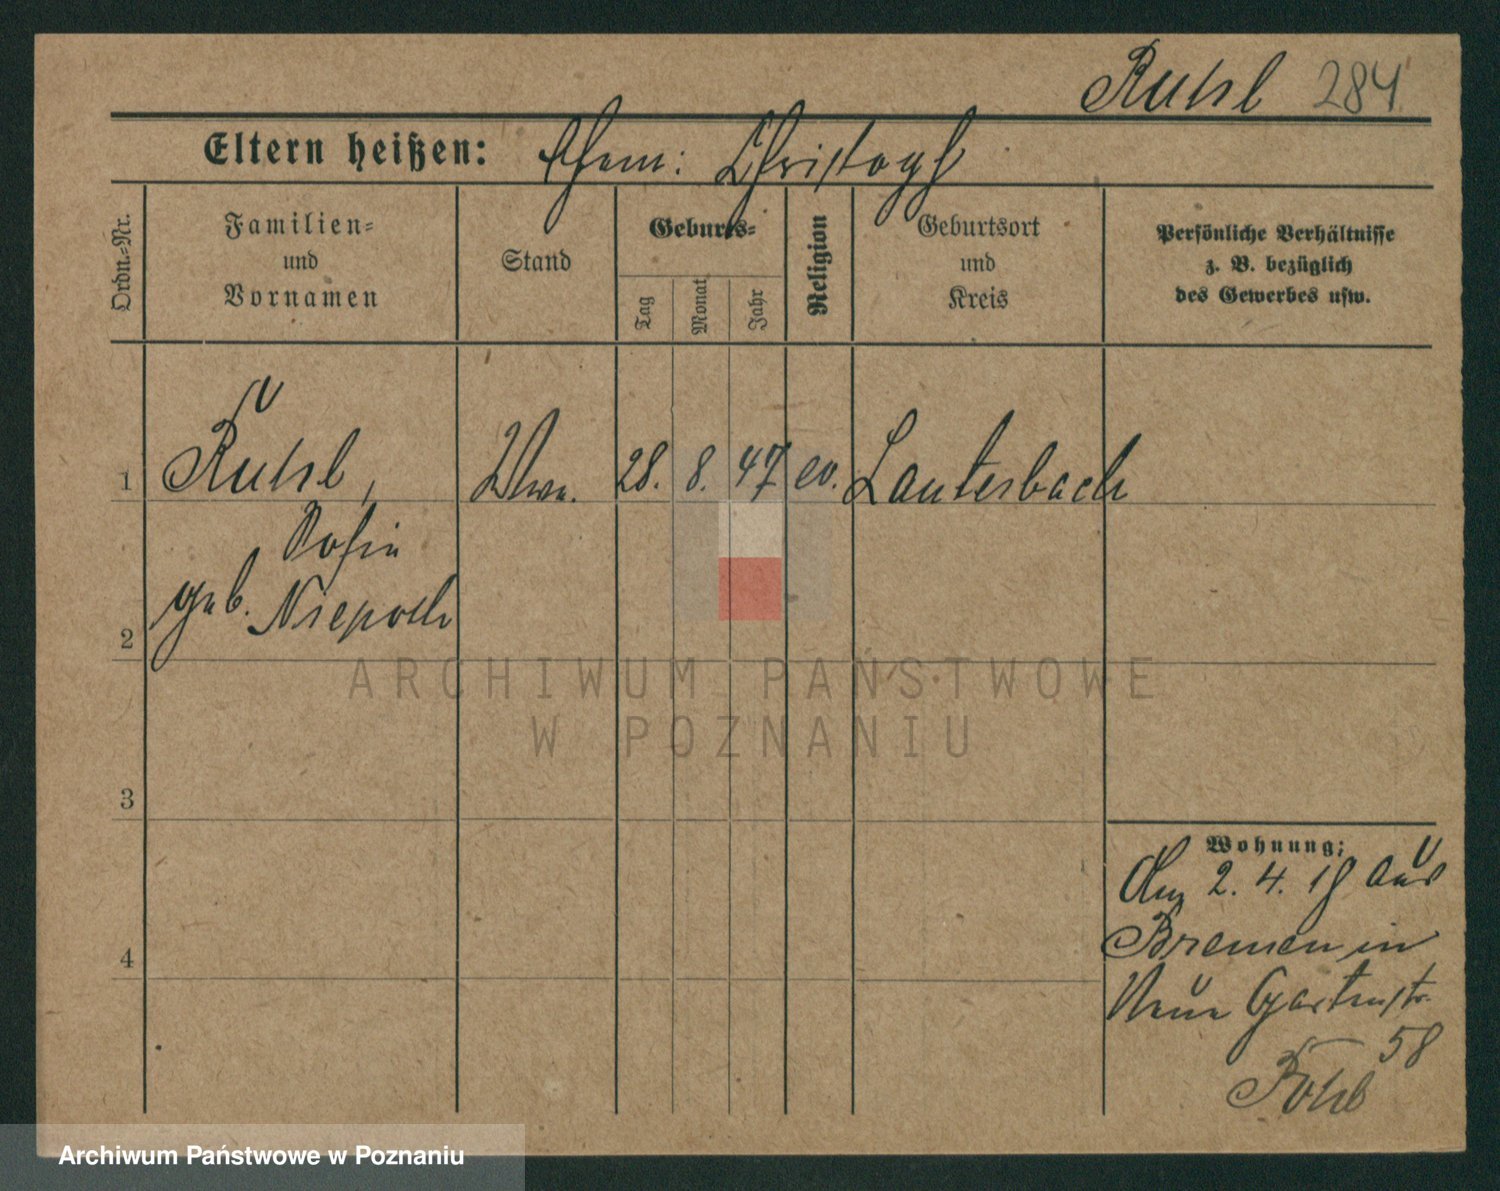 Ruhl 284
Eltern heißen: Ehem: Christoph
Ordn.-Nr.
Familien-
und
Vornamen
Stand
Geburts-
Tag
Monat
Jahr
Religion
Geburtsort
und
Kreis
Persönliche Verhältnisse
z. B. bezüglich
des Gewerbes usw.
1 Ruhl, Wwe. 28. 8. 47 ev. Lauterbach
Sofie
geb. Niepoth
2
3
4
Wohnung:
2. 4. 18 aus
Bremen in
Neue Gartenstr.
58
ARCHIWUM PAŃSTWOWE
W POZNANIU
Archiwum Państwowe w Poznaniu